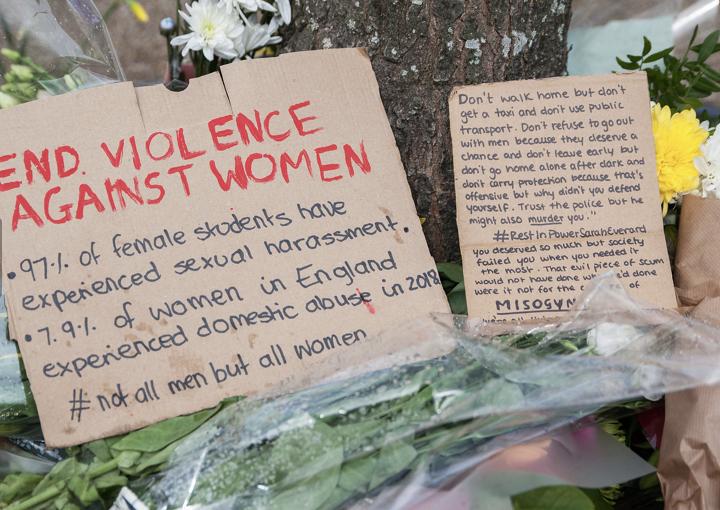 END VIOLENCE
AGAINST WOMEN
• 97% of female students have
experienced sexual harassment.
• 7.9% of women in England
experienced domestic abuse in 2018
# not all men but all women
Don't walk home but don't
get a taxi and don't use public
transport. Don't refuse to go out
with men because they deserve a
chance and don't leave early but
don't go home alone after dark and
don't carry protection because that's
offensive but why didn't you defend
yourself. Trust the police but he
might also murder you."
#RestInPowerSarahEverard
you deserved so much but society
failed you when you needed it
the most. That evil piece of scum
would not have done wh 'd done
were it not for the c of
MISOGYN